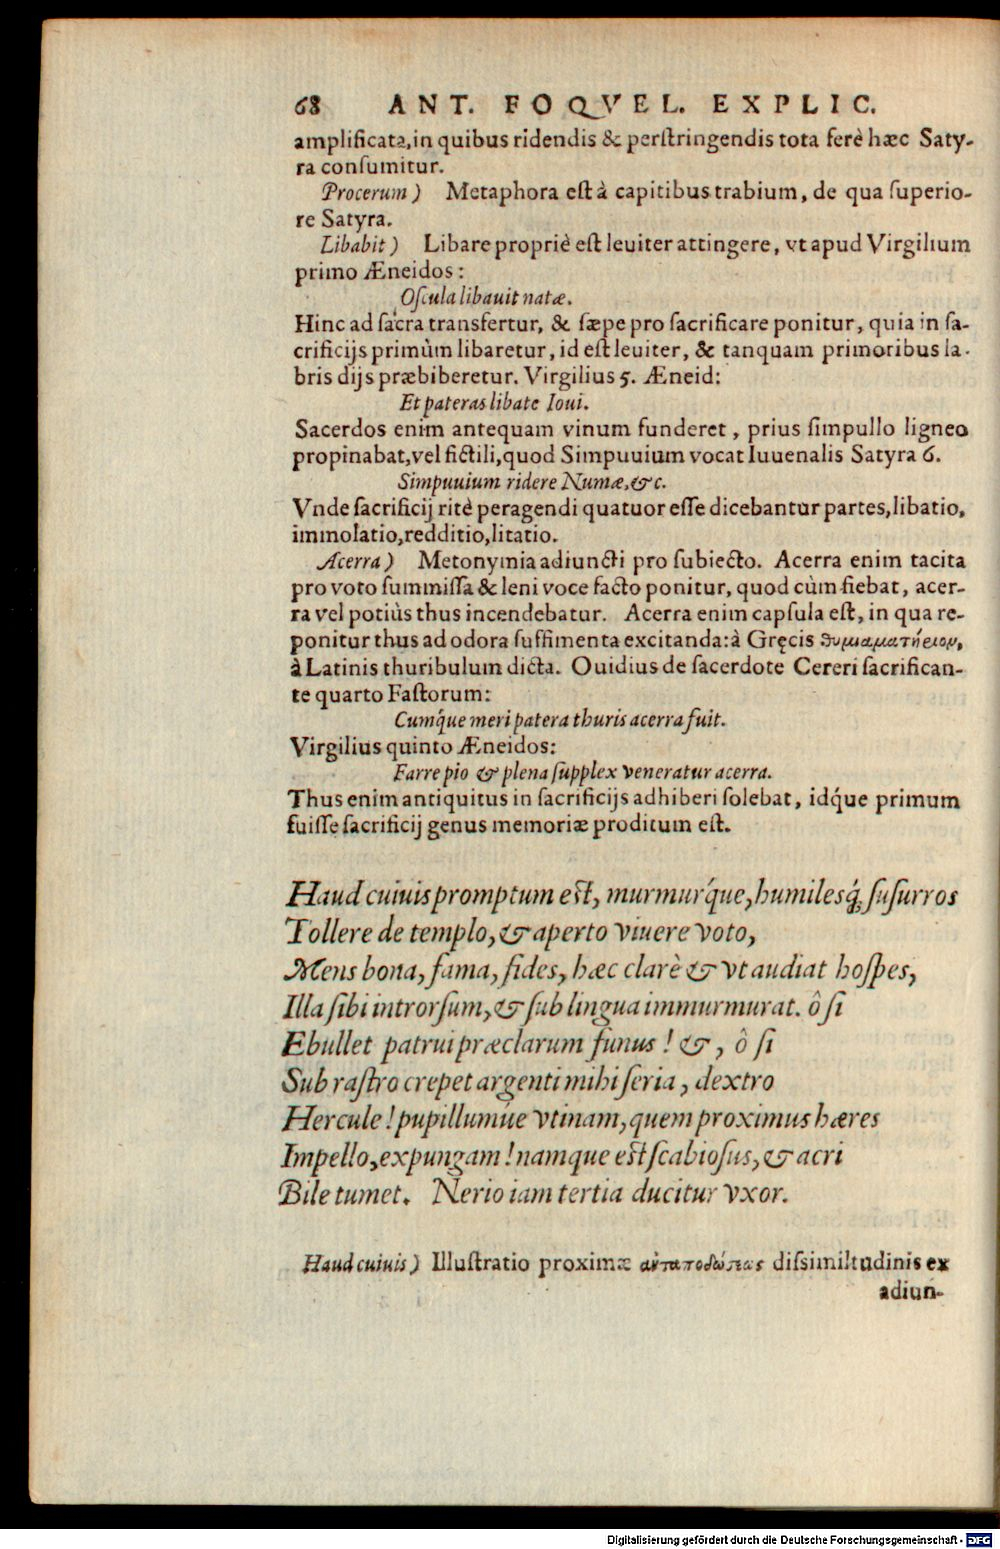 68 ANT. FOQVEL. EXPLIC.
amplificata, in quibus ridendis & perſtringendis tota ferè hæc Saty-
ra conſumitur.
Procerum) Metaphora eſt à capitibus trabium, de qua ſuperio-
re Satyra.
Libabit) Libare propriè eſt leuiter attingere, vt apud Virgilium
primo Æneidos:
Oſcula libauit natæ.
Hinc ad ſacra transfertur, & ſæpe pro ſacrificare ponitur, quia in ſa-
crificijs primùm libaretur, id eſt leuiter, & tanquam primoribus la-
bris dijs præbiberetur. Virgilius 5. Æneid:
Et pateras libate Ioui.
Sacerdos enim antequam vinum funderet, prius ſimpullo ligneo
propinabat, vel fictili, quod Simpuuium vocat Iuuenalis Satyra 6.
Simpuuium ridere Numæ, &c.
Vnde ſacrificij ritè peragendi quatuor eſſe dicebantur partes, libatio,
immolatio, redditio, litatio.
Acerra) Metonymia adiuncti pro ſubiecto. Acerra enim tacita
pro voto ſummiſſa & leni voce facto ponitur, quod cùm fiebat, acer-
ra vel potiùs thus incendebatur. Acerra enim capſula eſt, in qua re-
ponitur thus ad odora ſuffimenta excitanda: à Gręcis
à Latinis thuribulum dicta. Ouidius de ſacerdote Cereri ſacrifican-
te quarto Faſtorum:
Cumq́ue meri patera thuris acerra fuit.
Virgilius quinto Æneidos:
Farre pio & plena ſupplex veneratur acerra.
Thus enim antiquitus in ſacrificijs adhiberi ſolebat, idq́ue primum
fuiſſe ſacrificij genus memoriæ proditum eſt.
Haud cuiuis promptum eſt, murmurq́ue, humilesq́; ſuſurros
Tollere de templo, & aperto viuere voto,
Mens bona, fama, fides, hæc clarè & vt audiat hoſpes,
Illa ſibi introrſum, & ſub lingua immurmurat. ô ſi
Ebullet patrui præclarum funus! &, ô ſi
Sub raſtro crepet argenti mihi ſeria, dextro
Hercule! pupillumúe vtinam, quem proximus hæres
Impello, expungam! namque eſt ſcabioſus, & acri
Bile tumet. Nerio iam tertia ducitur vxor.
Haud cuiuis) Illuſtratio proximæ diſsimilitudinis ex
adiun-
Digitalisierung gefördert durch die Deutsche Forschungsgemeinschaft - DFG